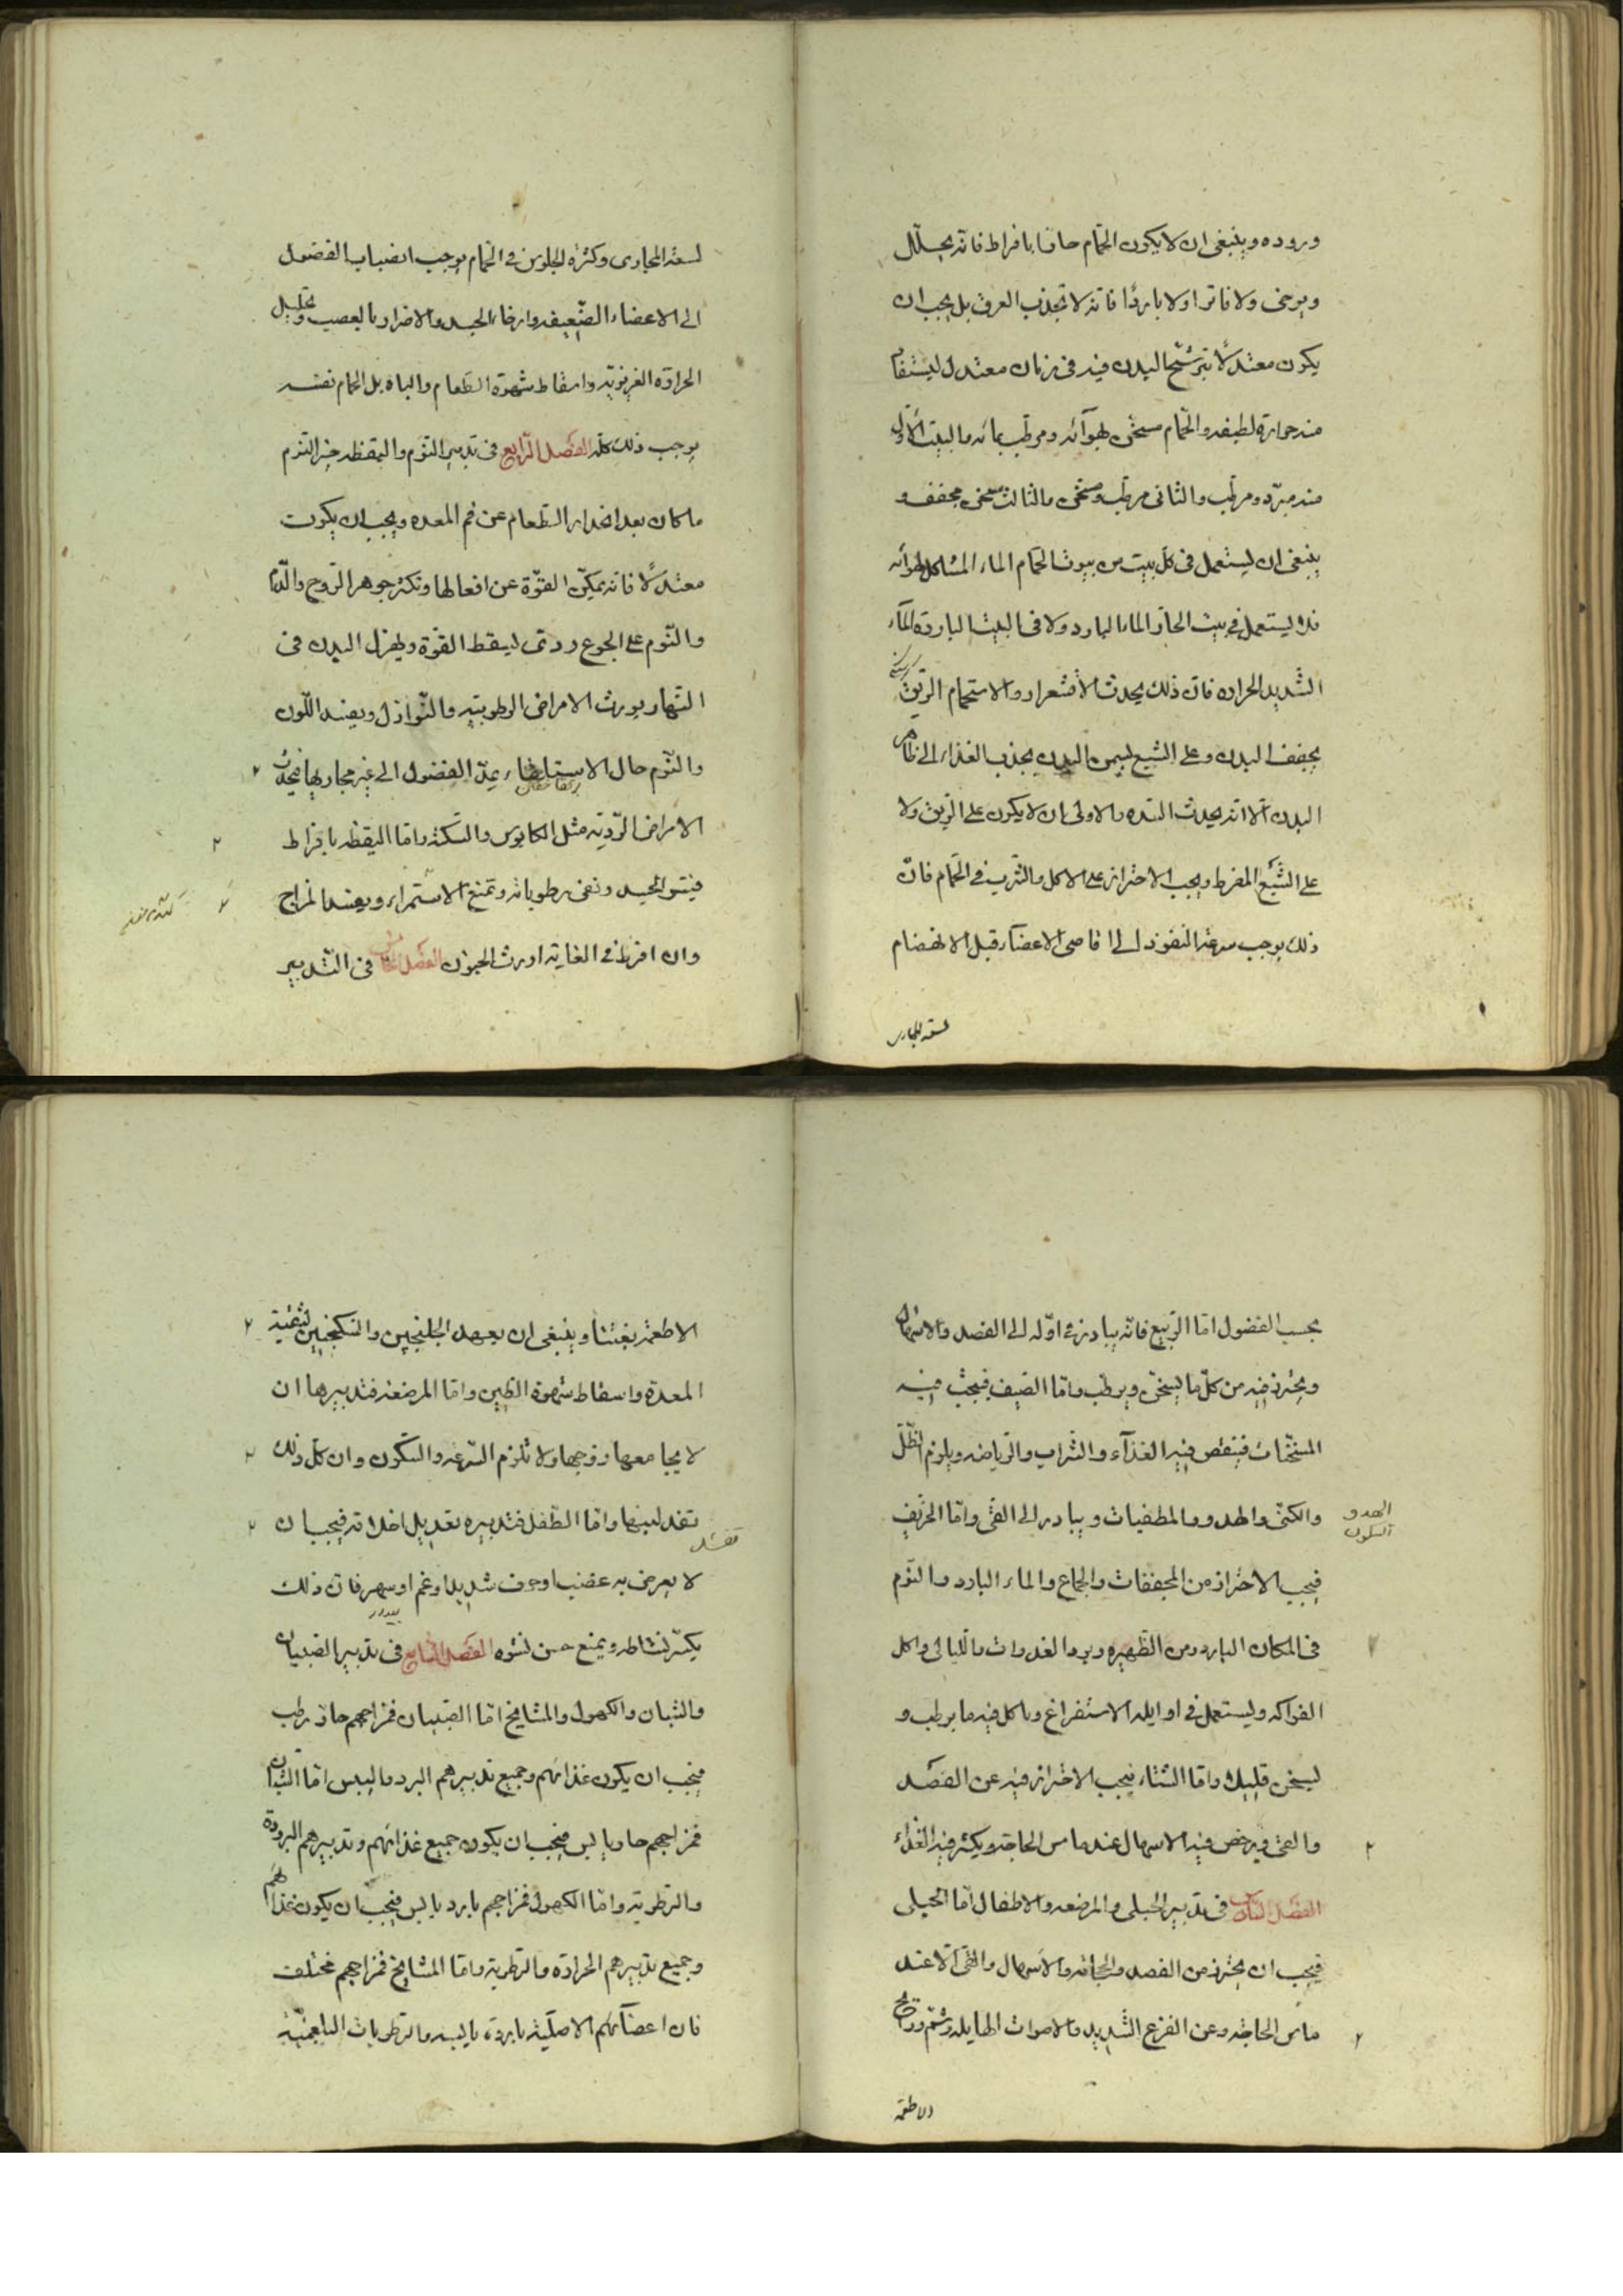 وروده وينبغى ان لا يكون الحمّام حارّا بافراط فانّه يحلّل
ويرخى ولا فاترا ولا باردًا فانّه لا تجذب العرق بل يجب ان
يكون معتدلًا يترشّح البدن فيه فى زمان معتدل ليستفاد
منه حرارة لطيفه والحمّام مسخّن بهوآئه ومرطّب بمائه والبيت الاوّل
منه مبرّد ومرطّب والثانى مرطّب ومسخّن والثالث مسخّن مجفف و
ينبغى ان يستعمل فى كلّ بيت من بيوت الحمّام الماء المشاكل لهوآئه
فلا يستعمل فى بيت الحارّ الماء البارد ولا فى البيت الباردة المآء
الشّديد الحراره فانّ ذلك يحدث الاقشعرار والاستحمام الرّيق
يجفف البدن وعلى الشبع يسمن البدن يجذب الغذاء الى ظاهر
البدن الّا انّه يحدث السّده والاولى ان لا يكون على الرّيق ولا
على الشّبع المفرط ويجب الاحتراز على الاكل والشّرب فى الحمّام فانّ
ذلك يوجب سرعة النفوذ الى اقاصى الاعضآء قبل الانهضام
لسعة المجارى
لسعة المجارى وكثرة الجلوس فى الحمّام يوجب انصباب الفضول
الى الاعضاء الضّعيفه وارخاء الجسد والاضرار بالعصب وتحليل
الحرارة الغريزيّه واسقاط شهوة الطّعام والباه بل الحمام نفسه
يوجب ذلك كلّه الفصل الرّابع فى تدبير النّوم واليقظه خير النّوم
ما كان بعد انحدار الطّعام عن فم المعده ويجب ان يكون
معتدلًا فانّه يمكّن القوّة عن افعالها وتكثر جوهر الرّوح والدّم
والنّوم على الجوع ردىّ يسقط القوّة ويهزل البدن فى
النّهار يورث الامراض الرطوبتيه والنّوازل ويفسد اللّون
والنّوم حال الاستلقاء يميل الفضول الى غير مجاريها فيحدث
الامراض الرّديّه مثل الكابوس والسّكته وامّا اليقظه بافراط
فيتسو الجسد وتفنى رطوباته وتمنع الاستمراء ويفسد المزاج
وان افرط فى الغاية اورث الجنون الفصل الخامس فى التّدبير
بحسب الفصول امّا الرّبيع فانّه يبادر فى اوّله الى الفصد والاسهال
ويحترز فيه من كلّ ما يسخّن ويرطّب وامّا الصّيف فيجتنب فيه
المسخّنات فينقص فيه الغذآء والشّراب والرّياضه ويلزم الظّلّ
والكنّ والهدو والمطفيات ويبادر الى القئ وامّا الخريف
الهدو
السكون
فيجب الاحتراز من المجففات والجماع والماء البارد والنّوم
فى المكان البارد ومن الظّهيره وبرد الغدوات والليالى واكل
الفواكه ويستعمل فى اوايله الاستفراغ وياكل فيه ما يرطب و
يسخن قليلا وامّا الشتاء فيجب الاحتراز فيه عن الفصد
والقئ ويرخص فيه الاسهال عند ماس الحاجة ويكثر فيه الغذاء
الفصل السّادس فى تدبير الحبلى والمرضعه والاطفال امّا الحبلى
فيجب ان يحترز من الفصد والحجامه والاسهال والقئ الّا عند
ماس الحاجة وعن الفزع الشّديد والاصوات الهايله وشمّ روايح
الاطعمة
الاطعمة بغتتا وينبغى ان يعهد الجلنجبين والسّكنجبين لتنقية
المعدة واسقاط شهوة الطّين وامّا المرضعة فتدبيرها ان
لا يجامعها زوجها ولا تلزم السّرعة والسّكون وان كلّ ذلك
تفسد لبنها وامّا الطّفل فتدبيره تعديل اخلاقه فيجب ان
تفسد
لا يعرض به غضب او خوف شديد او غم او سهر فانّ ذلك
يكسّر نشاطه ويمنع حسن نشوه الفصل السّابع فى تدبير الصّبيان
والشبان والكهول والمشايخ امّا الصّبيان فمزاجهم حارّ رطب
فيجب ان يكون غذائهم وجميع تدبيرهم البرد واليبس امّا الشبّان
فمزاجهم حار يابس فيجب ان يكون جميع غذائهم وتدبيرهم البرودة
والرّطوبة وامّا الكهول فمزاجهم بارد يابس فيجب ان يكون غذائهم
وجميع تدبيرهم الحرارة والرّطوبة وامّا المشايخ فمزاجهم مختلف
فان اعضآئهم الاصليّة باردة يابسه والرّطوبات البلغميّة